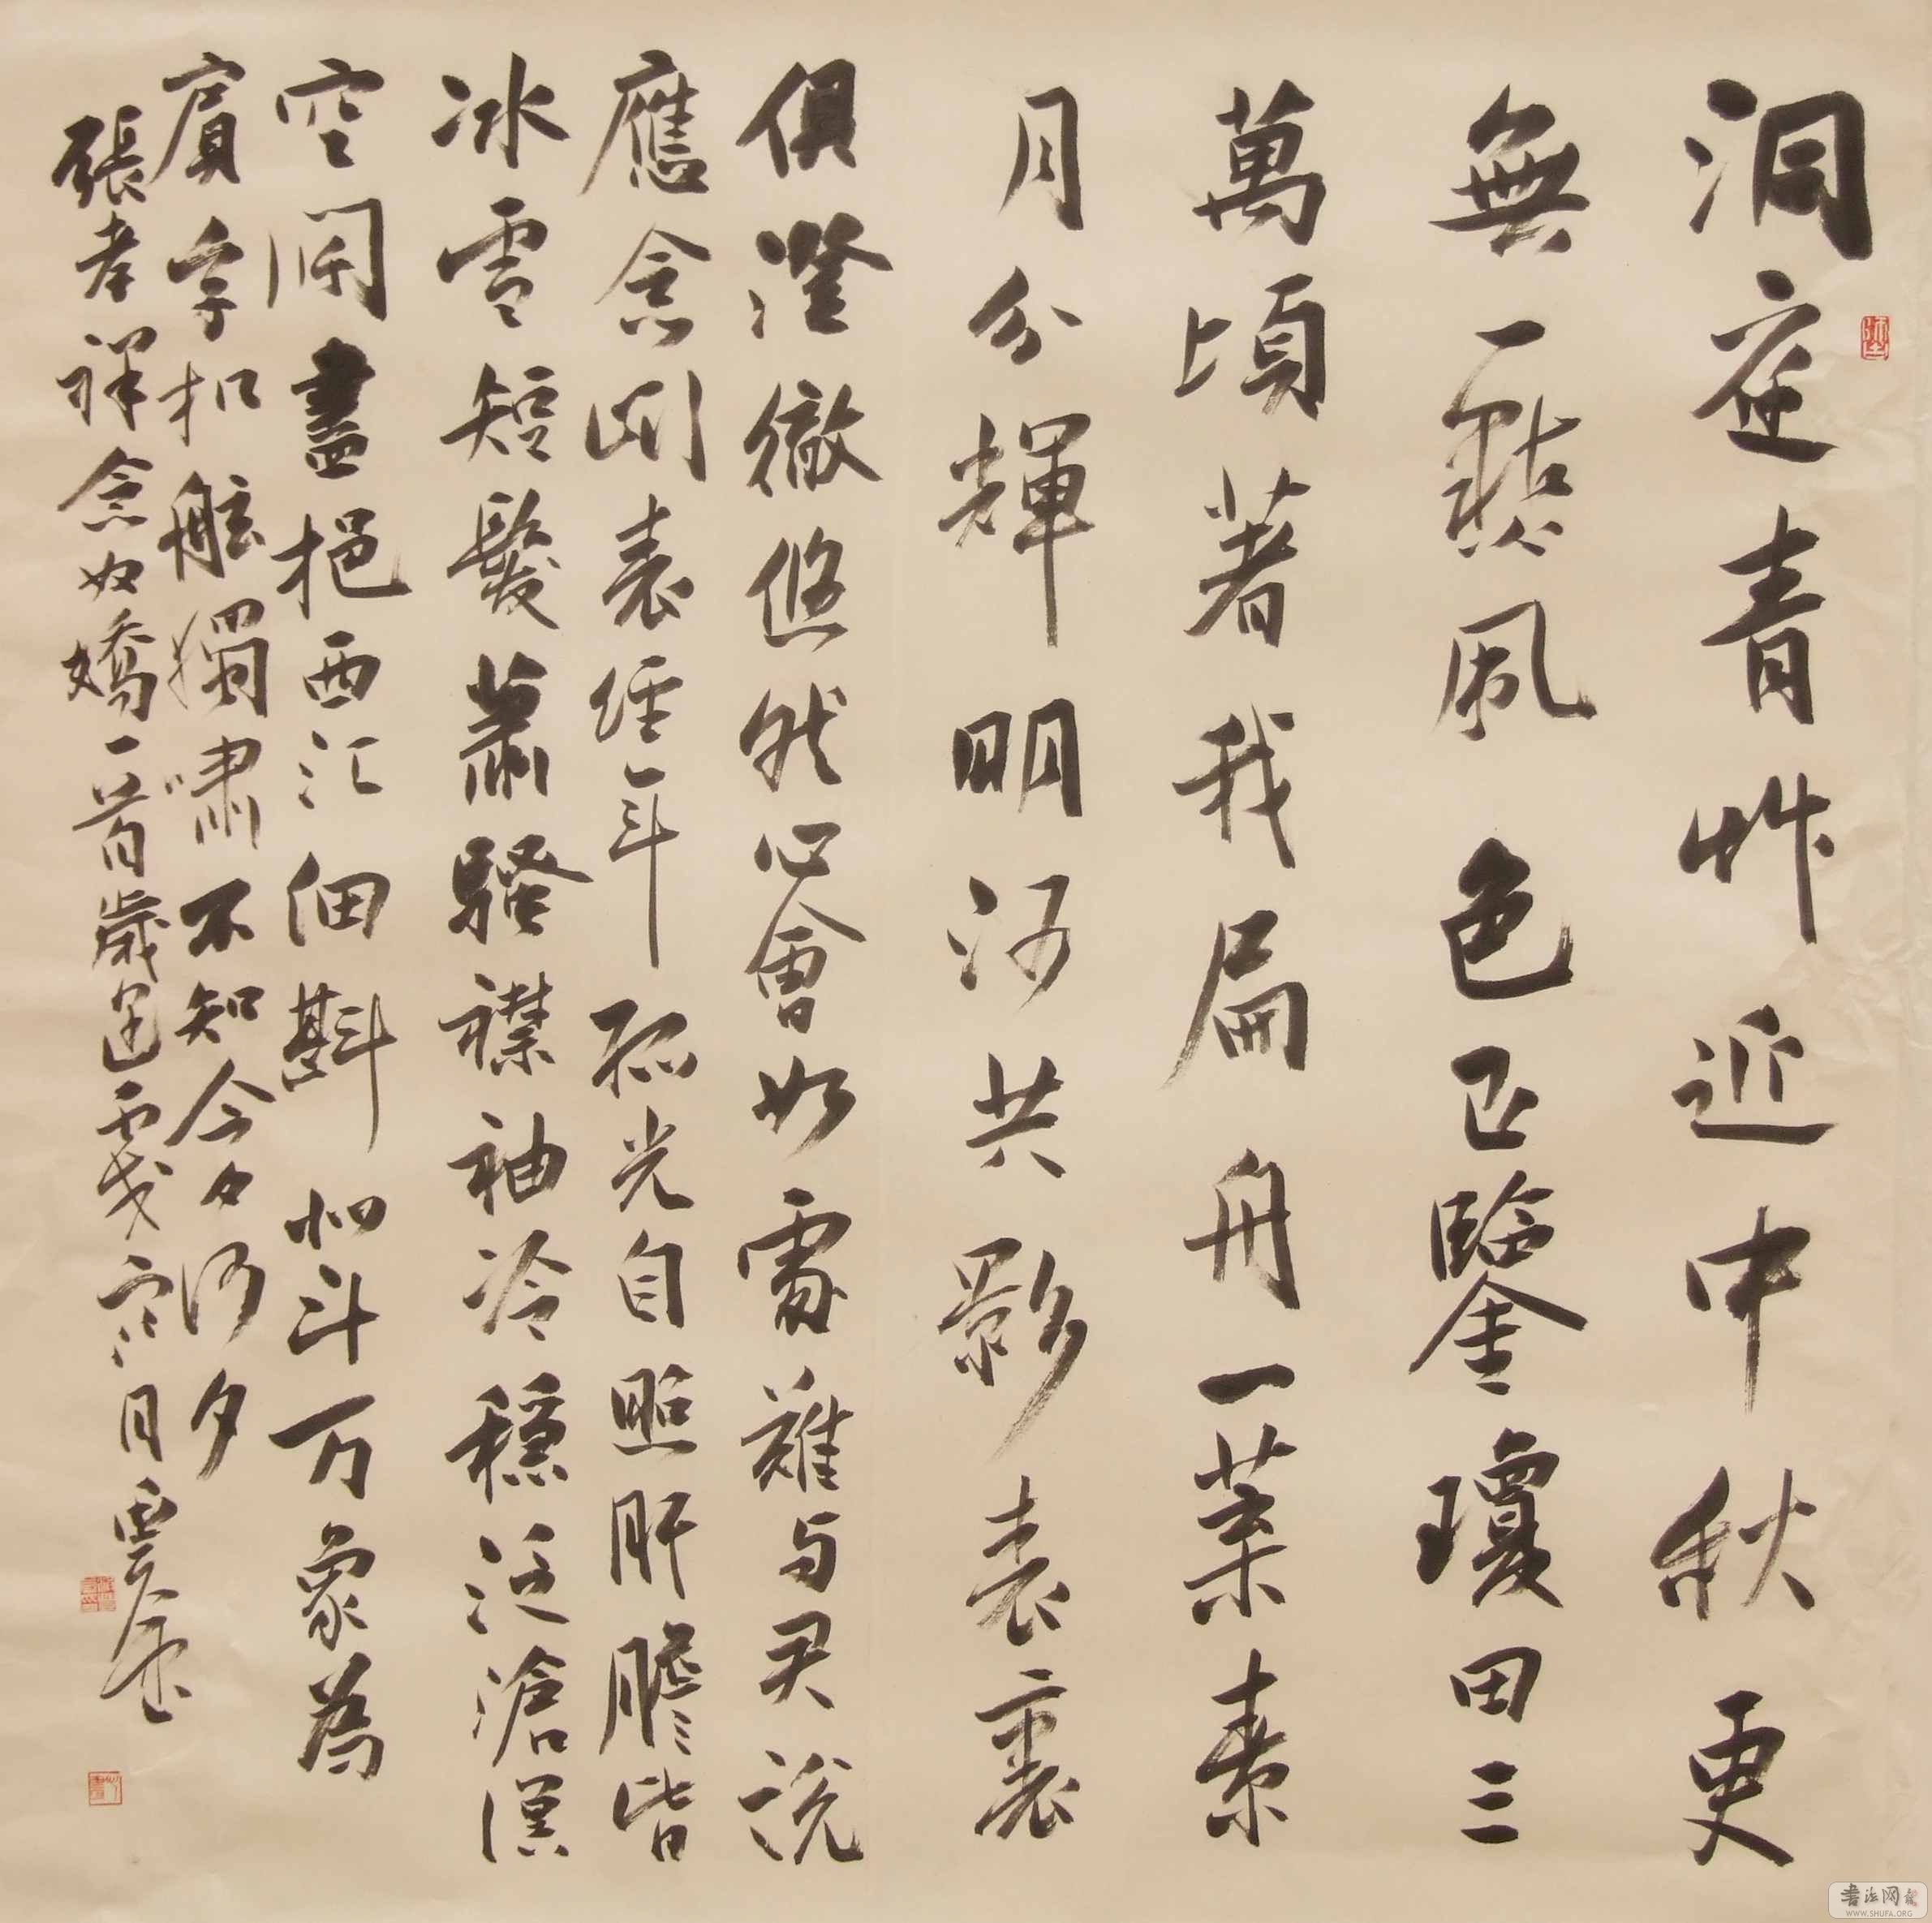 洞庭青艸近中秋更
無一點風色玉鑒瓊田三
萬頃著我扁舟一葉素
月分輝明河共影表裏
俱澄徹悠然心會妙處難与君說
應念表經年孤光自照肝膽皆
冰雪短髮蕭騷襟袖冷穩泛滄溟
空闊盡挹西江細斟北斗万象為
賓客扣舷獨嘯不知今夕何夕
張孝祥念奴嬌一首歲月
WWW.SHUFA.ORG